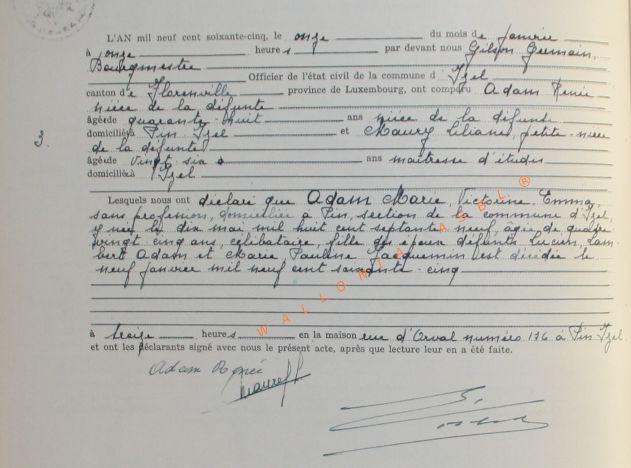 L'AN mil neuf cent soixante-cinq, le onze du mois de janvier
à onze heures par devant nous Gilson Germain,
Bourgmestre
Officier de l'état civil de la commune d'Izel
canton de Florenville province de Luxembourg, ont comparu Adam Renée
nièce de la défunte
âgée de quarante-huit ans nièce de la défunte
domiciliée à Pin Izel et Maury Liliane, petite-nièce
3.
de la défunte
âgée de vingt-six ans maîtresse d'études
domiciliée à Izel
Lesquels nous ont déclaré que Adam Marie, Victorine, Emma,
sans profession, domiciliée à Pin, section de la commune d'Izel,
y née le dix mai mil huit cent septante neuf, âgée de quatre
vingt cinq ans, célibataire, fille des époux défunts Lucien, Lam
bert Adam et Marie Pauline Jacquemin est décédée le
neuf janvier mil neuf cent soixante-cinq
WALLONIA ASBL ®
à treize heures en la maison rue d'Orval numéro 176 à Pin Izel
et ont les déclarants signé avec nous le présent acte, après que lecture leur en a été faite.
Adam Renée